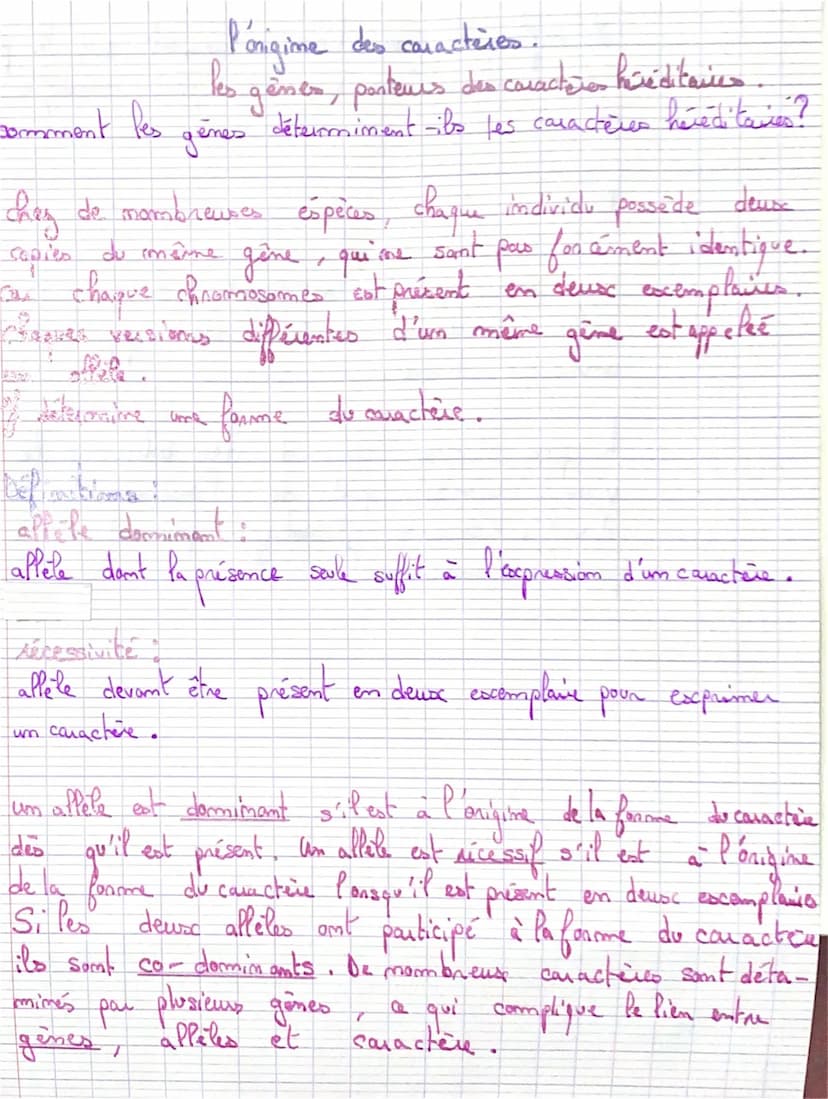 l'origine des caractères.
les gènes, porteurs des caractères héréditaires.
comment les gènes déterminent-ils les caractères héréditaires?
chez de nombreuses espèces, chaque individu possède deux
copies du même gène, qui ne sont pas forcément identique.
Car chaque chromosomes est présent en deux exemplaires.
Chaques versions différentes d'un même gène est appeleé
un allèle.
Il détermine une forme du caractère.
Définitions :
allèle dominant :
allèle dont la présence seule suffit à l'expression d'un caractère.
récessivité :
allèle devant être présent en deux exemplaire pour exprimer
un caractère.
un allèle est dominant s'il est à l'origine de la forme du caractère
dès qu'il est présent. Un allèle est récessif s'il est à l'origine
de la forme du caractère lorsqu'il est présent en deux exemplaires
Si les deux allèles ont participé à la forme du caractère
ils sont co-dominants. De nombreux caractères sont déte-
minés par plusieurs gènes, ce qui complique le lien entre
gènes, allèles et caractère.